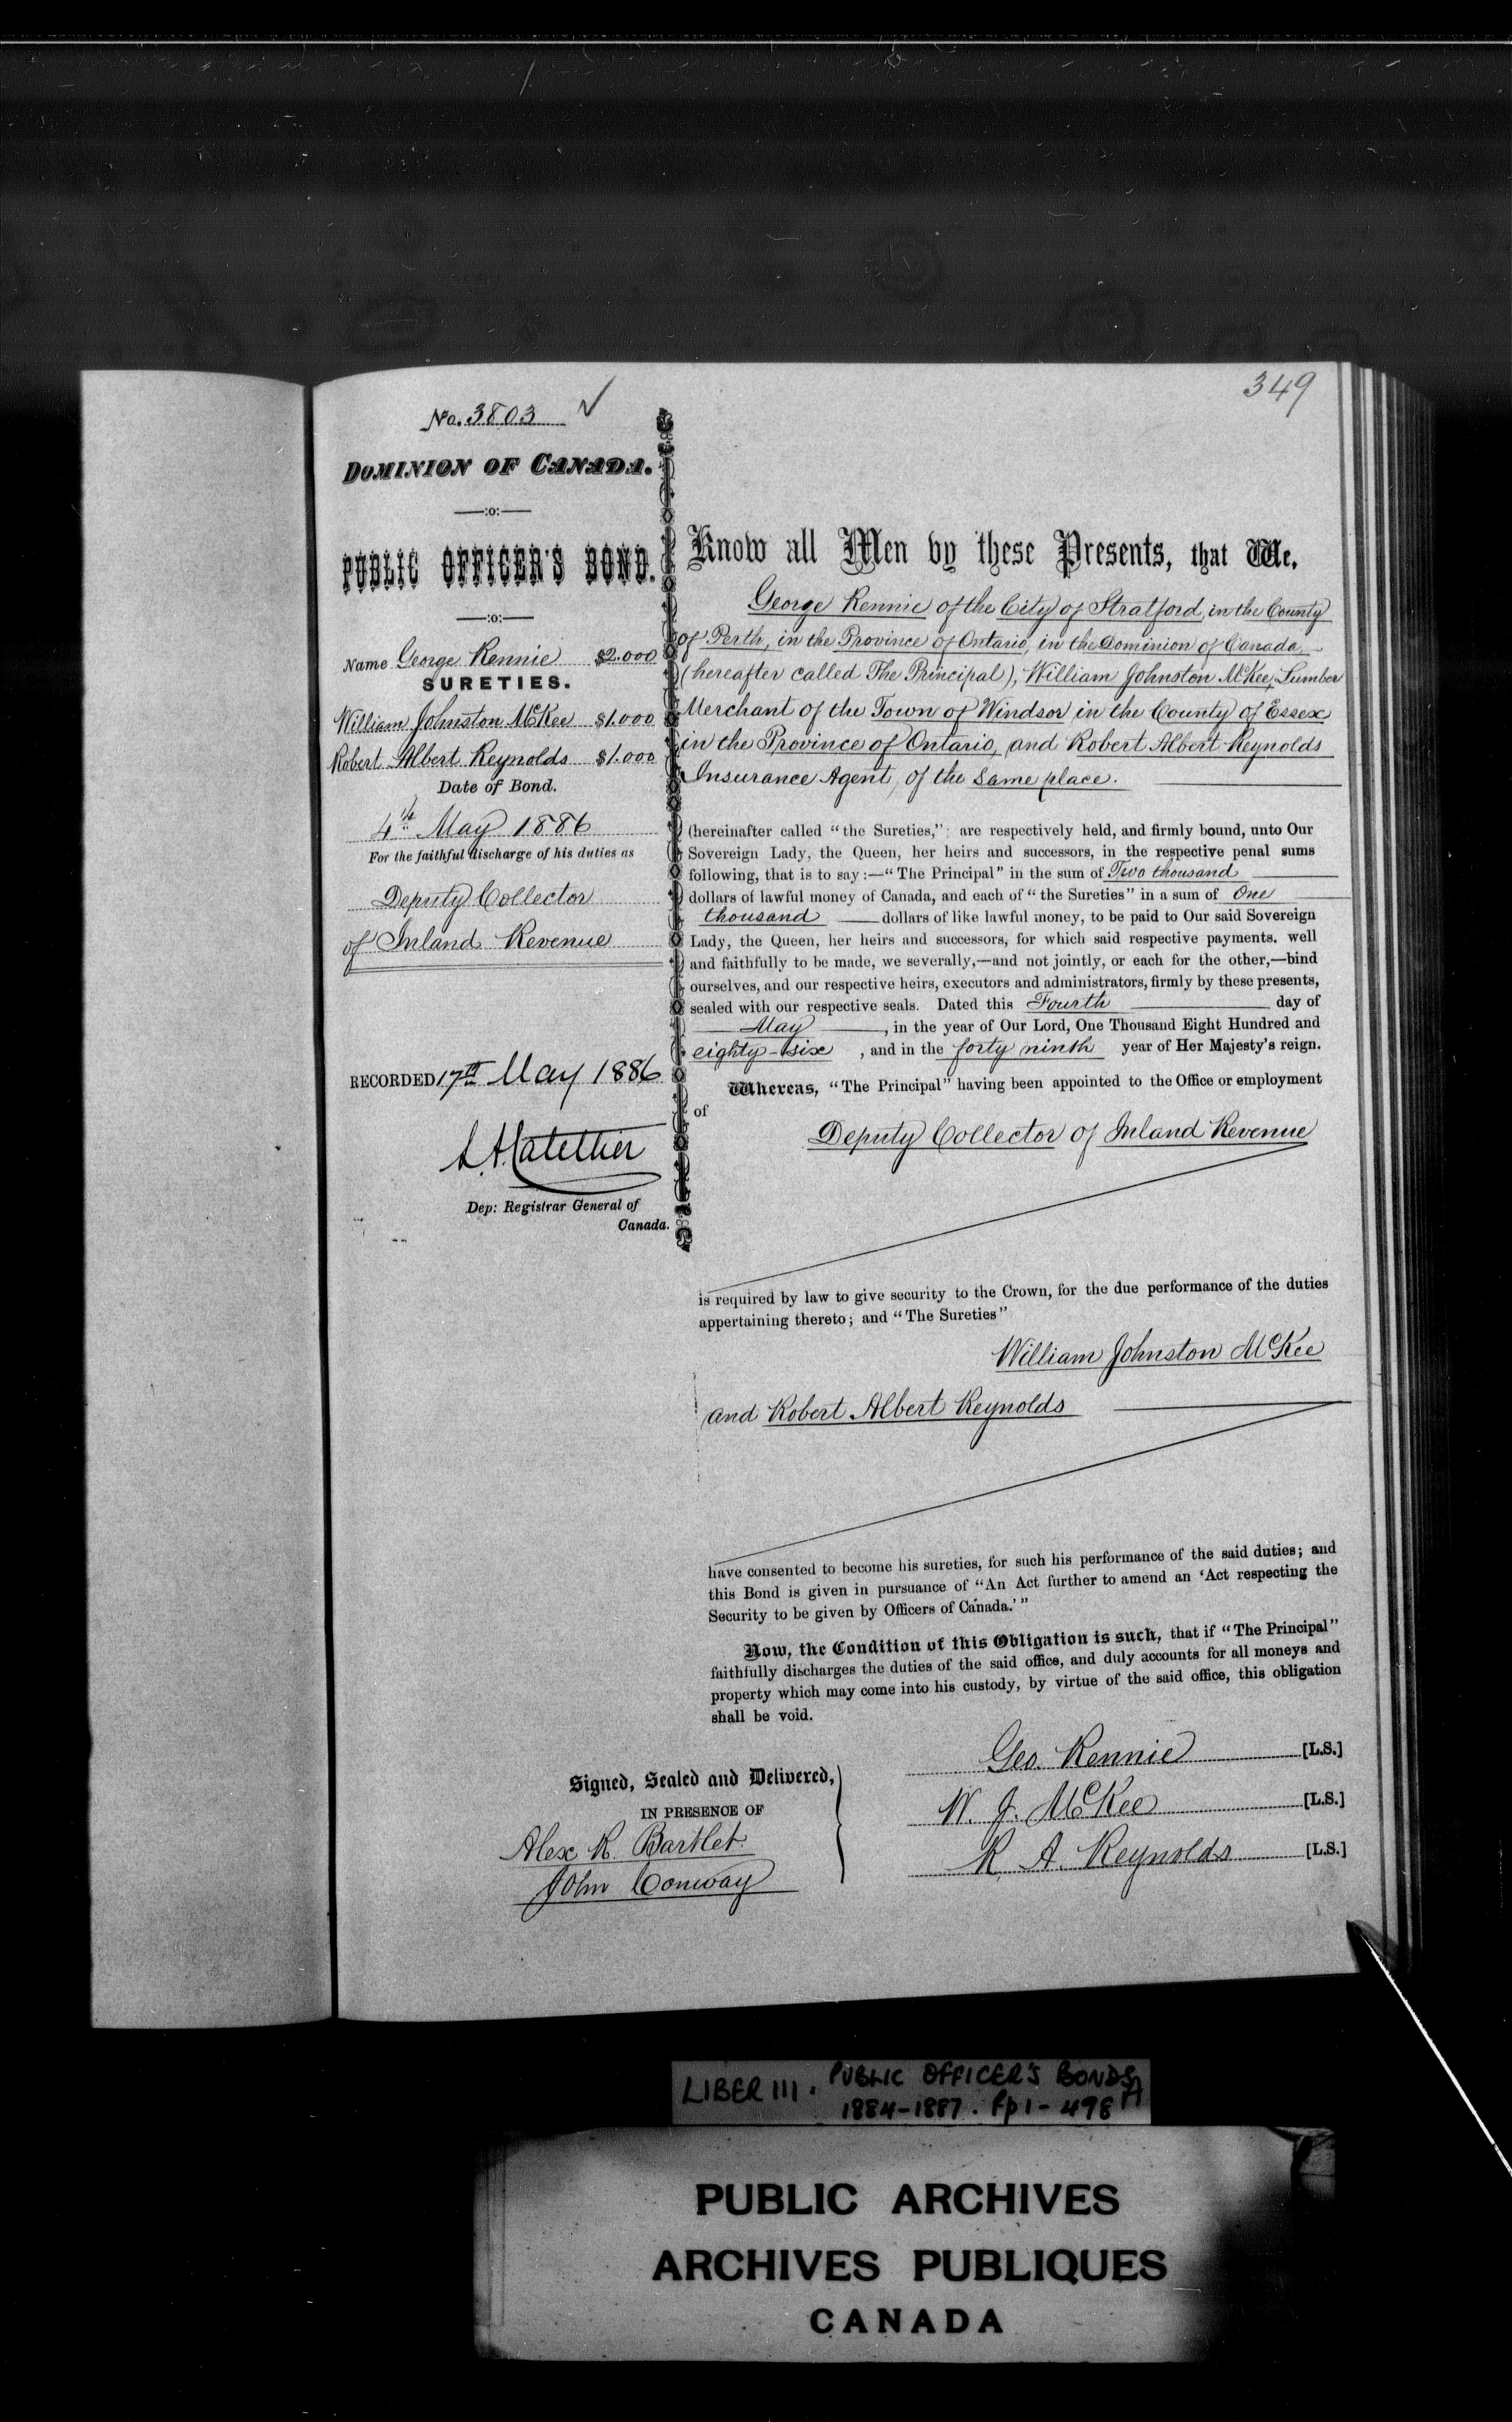 349
No. 3803 ✓
DOMINION OF CANADA.
—:o:—
PUBLIC OFFICER'S BOND.
—:o:—
Name George Rennie $2.000
SURETIES.
William Johnston McKee $1.000
Robert Albert Reynolds $1.000
Date of Bond.
4th May 1886
For the faithful discharge of his duties as
Deputy Collector
of Inland Revenue
RECORDED 17th May 1886
Dep: Registrar General of
Canada.
Know all Men by these Presents, that We,
George Rennie of the City of Stratford, in the County
of Perth, in the Province of Ontario, in the Dominion of Canada
(hereafter called The Principal), William Johnston McKee, Lumber
Merchant of the Town of Windsor in the County of Essex
in the Province of Ontario, and Robert Albert Reynolds
Insurance Agent, of the same place.
(hereinafter called "the Sureties," are respectively held, and firmly bound, unto Our
Sovereign Lady, the Queen, her heirs and successors, in the respective penal sums
following, that is to say:—"The Principal" in the sum of Two thousand
dollars of lawful money of Canada, and each of "the Sureties" in a sum of One
thousand dollars of like lawful money, to be paid to Our said Sovereign
Lady, the Queen, her heirs and successors, for which said respective payments. well
and faithfully to be made, we severally,—and not jointly, or each for the other,—bind
ourselves, and our respective heirs, executors and administrators, firmly by these presents,
sealed with our respective seals. Dated this Fourth day of
May, in the year of Our Lord, One Thousand Eight Hundred and
eighty-six, and in the forty ninth year of Her Majesty's reign.
Whereas, "The Principal" having been appointed to the Office or employment
of
Deputy Collector of Inland Revenue
is required by law to give security to the Crown, for the due performance of the duties
appertaining thereto; and "The Sureties"
William Johnston McKee
and Robert Albert Reynolds
have consented to become his sureties, for such his performance of the said duties; and
this Bond is given in pursuance of "An Act further to amend an 'Act respecting the
Security to be given by Officers of Canada.'"
Now, the Condition of this Obligation is such, that if "The Principal"
faithfully discharges the duties of the said office, and duly accounts for all moneys and
property which may come into his custody, by virtue of the said office, this obligation
shall be void.
Geo. Rennie [L.S.]
W. J. McKee [L.S.]
R. A. Reynolds [L.S.]
Signed, Sealed and Delivered,
IN PRESENCE OF
Alex R. Bartlet.
John Conway
LIBER III. PUBLIC OFFICER'S BONDS
1884-1887. Fp 1-498
PUBLIC ARCHIVES
ARCHIVES PUBLIQUES
CANADA